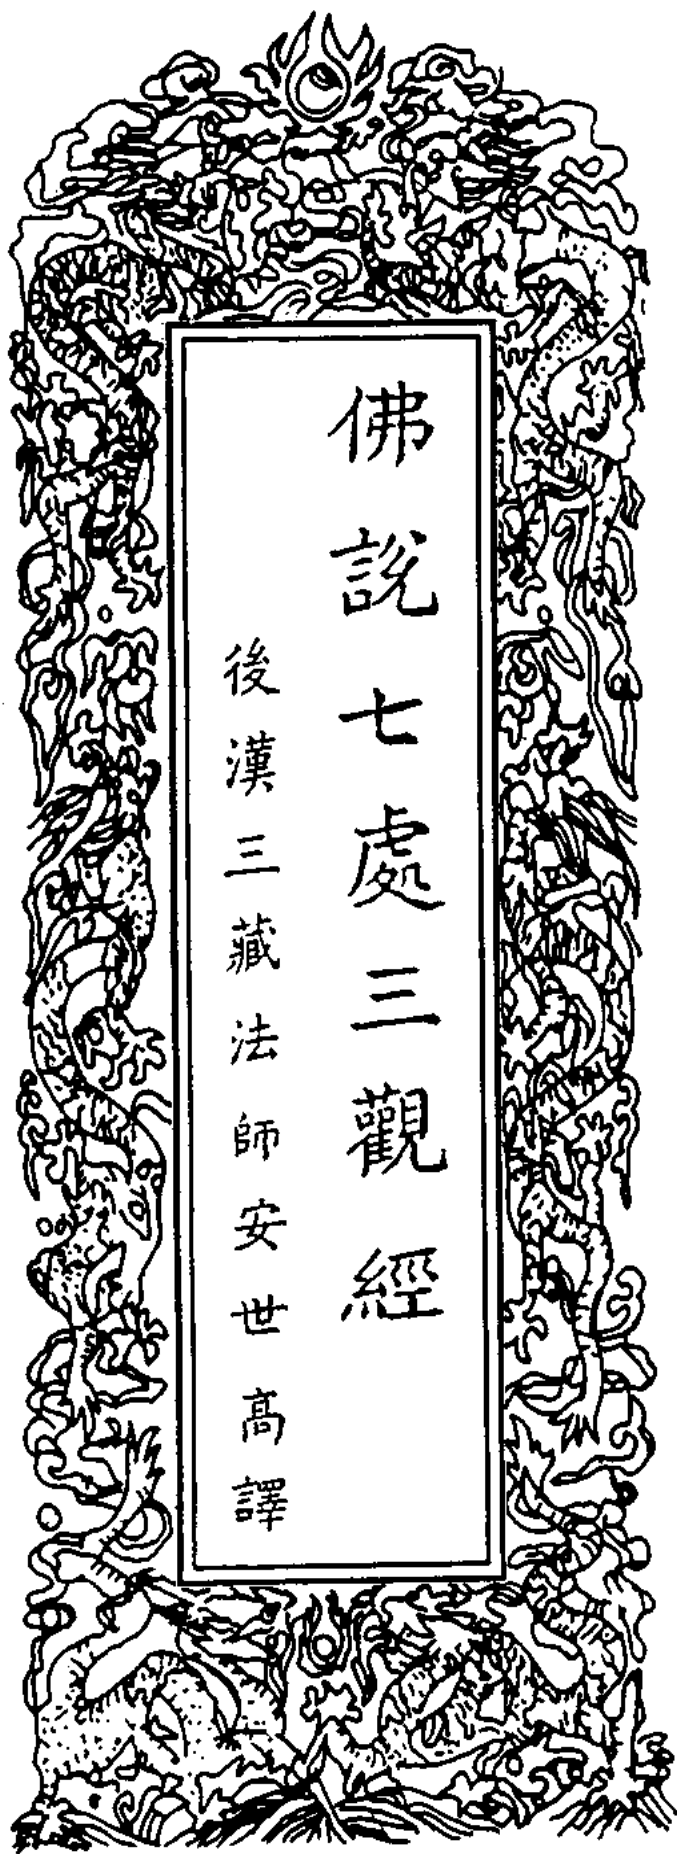 佛說七處三觀經
後漢三藏法師安世高譯